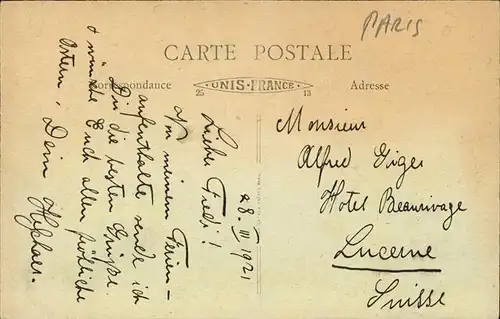 PARIS
CARTE POSTALE
Correspondance
UNIS-FRANCE
25
13
Adresse
28. III 1921
Liebe Friedi!
Von meinem Ferien-
aufenthalte sende ich
Dir die besten Grüsse
& wünsche Euch allen fröhliche
Ostern, Dein
Monsieur
Alfred Giger
Hotel Beaurivage
Lucerne
Suisse